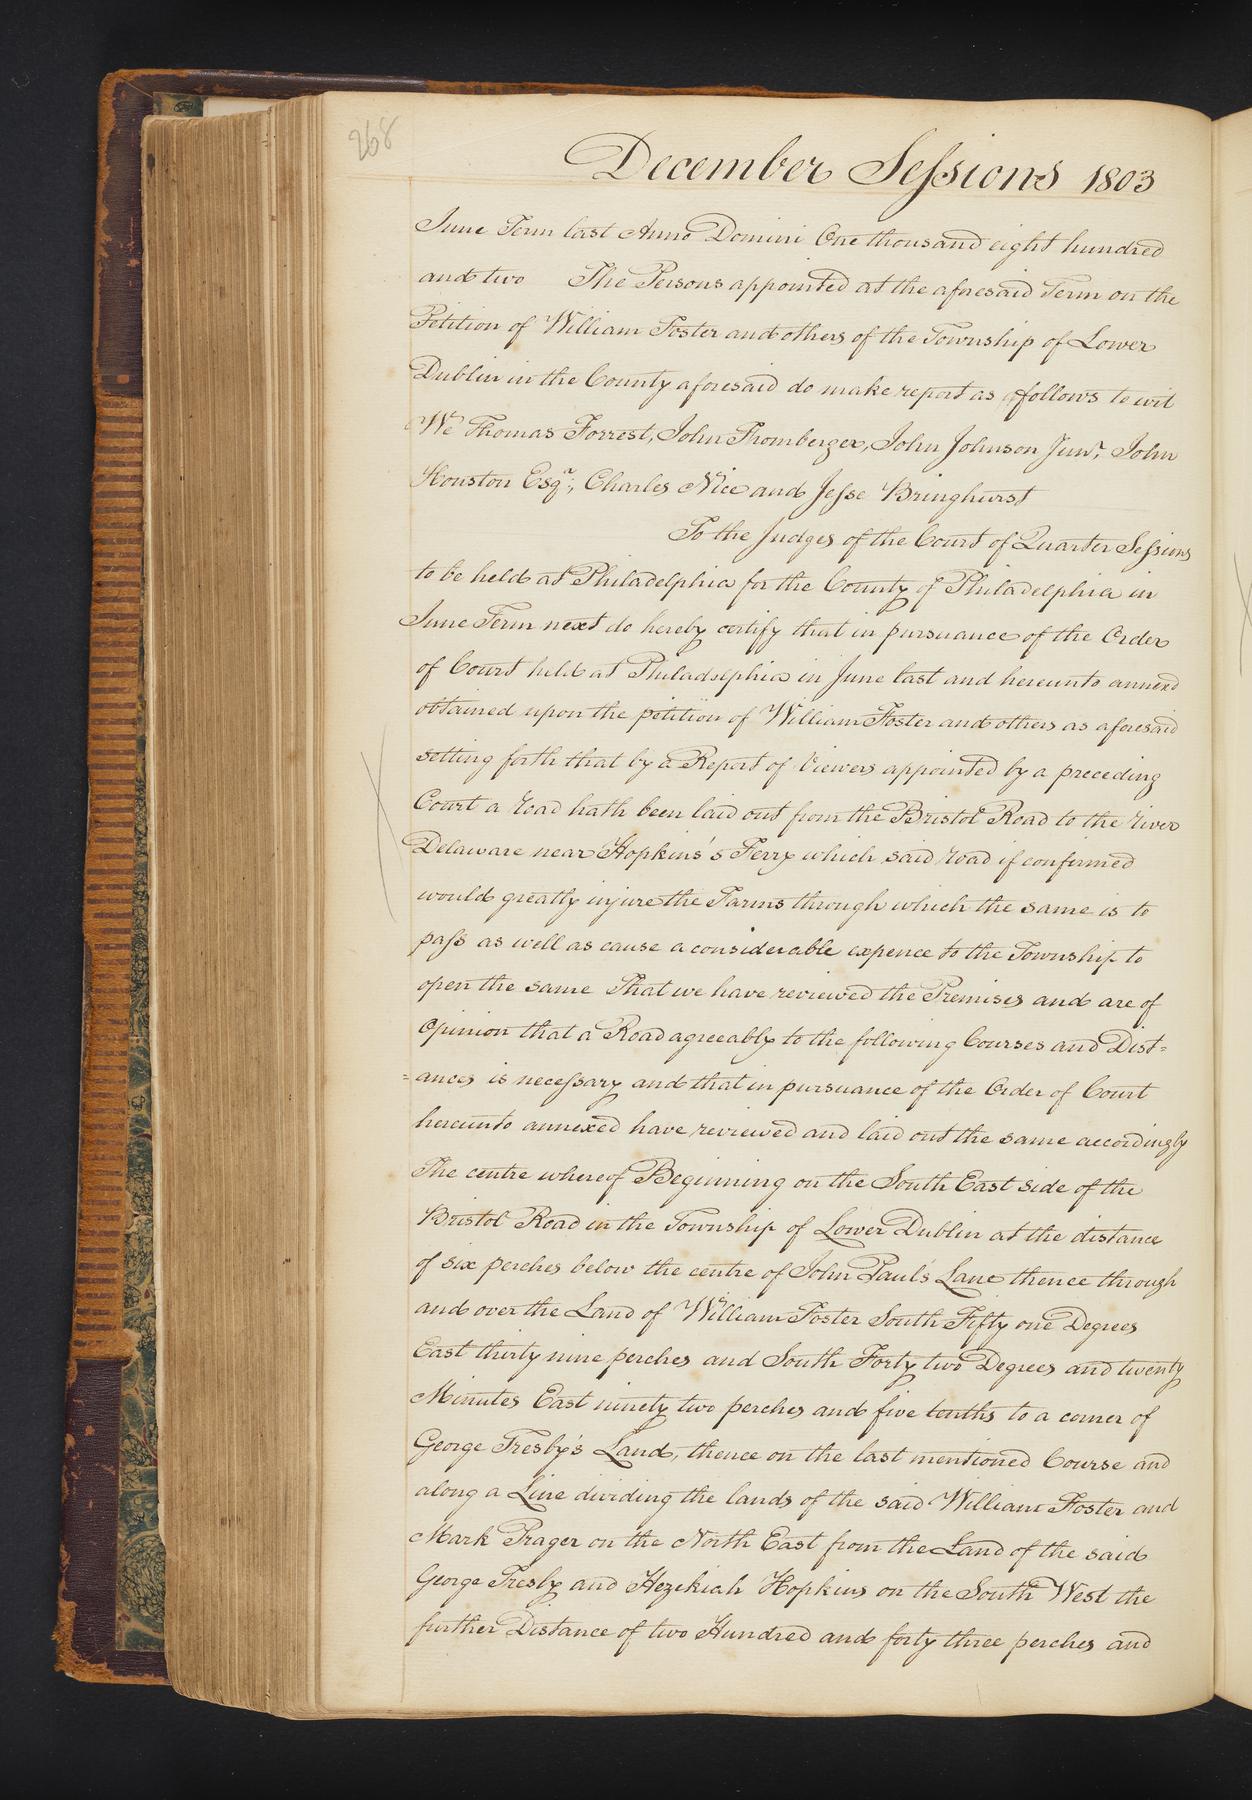 268
December Sessions 1803
June Term last Anno Domini One thousand eight hundred
and two The Persons appointed at the aforesaid Term on the
Petition of William Foster and others of the Township of Lower
Dublin in the County aforesaid do make report as follows to wit
We Thomas Forrest, John Thomberger, John Johnson Junr, John
Houston Esqr, Charles Nice and Jesse Bringhurst
To the Judges of the Court of Quarter Sessions
to be held at Philadelphia for the County of Philadelphia in
June Term next do hereby certify that in pursuance of the Order
of Court held at Philadelphia in June last and hereunto annexd
obtained upon the petition of William Foster and others as aforesaid
setting forth that by a Report of Viewers appointed by a preceding
Court a road hath been laid out from the Bristol Road to the river
Delaware near Hopkins's Ferry which said road if confirmed
would greatly injure the Farms through which the same is to
pass as well as cause a considerable expence to the Township to
open the same That we have reviewed the Premises and are of
Opinion that a Road agreeably to the following Courses and Dist=
=ances is necessary and that in pursuance of the Order of Court
hereunto annexed have reviewed and laid out the same accordingly
The centre whereof Beginning on the South East side of the
Bristol Road in the Township of Lower Dublin at the distance
of six perches below the centre of John Paul's Lane thence through
and over the Land of William Foster South Fifty one Degrees
East thirty nine perches and South Forty two Degrees and twenty
Minutes East ninety two perches and five tenths to a corner of
George Tresby's Land, thence on the last mentioned Course and
along a Line dividing the lands of the said William Foster and
Mark Prager on the North East from the Land of the said
George Tresby and Hezekiah Hopkins on the South West the
further Distance of two Hundred and forty three perches and